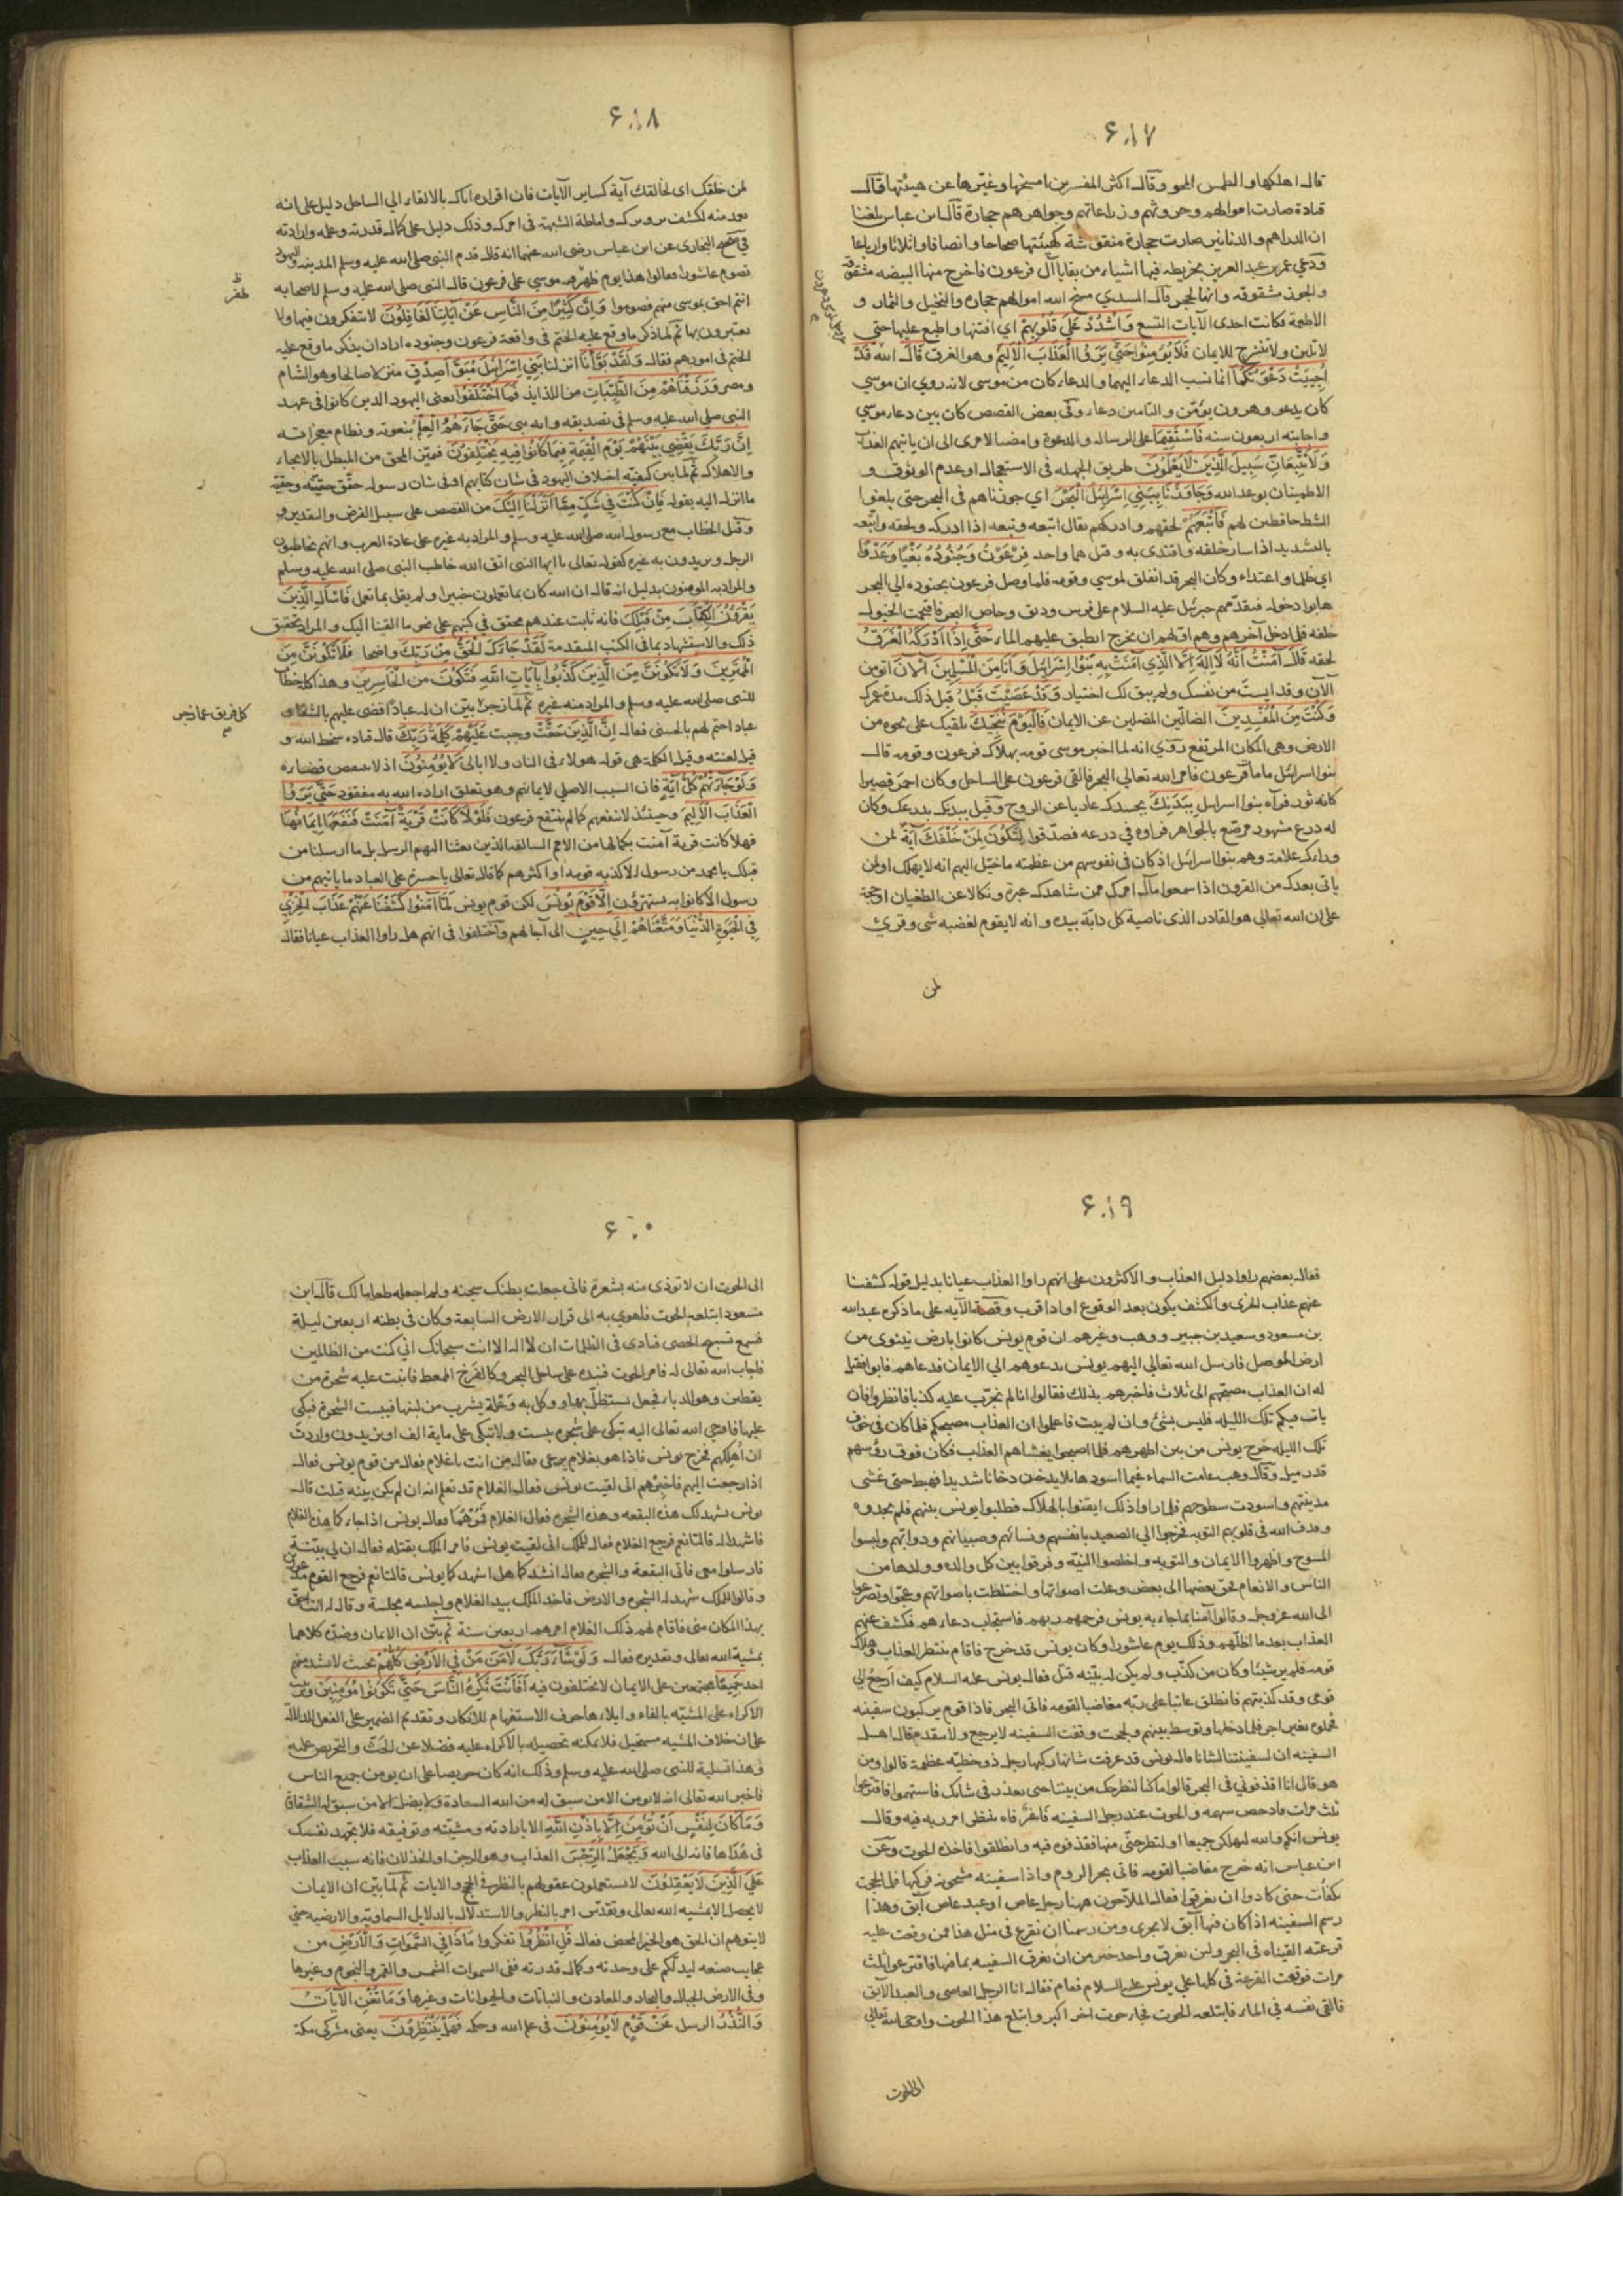 ۶۰۱۷
قال اهلكها والطمس المحو وقال اكثر المفسرين امسخها وغيّرها عن هيئتها قال
قتادة صارت اموالهم وحروثهم وزراعاتهم وجواهرهم حجارة قال ابن عباس بلغنا
ان الدراهم والدنانير صارت حجارة منقوشة كهيئتها صحاحا وانصافا واثلاثا وارباعا
ودعي عمر بن عبد العزيز بخريطة فيها اشياء من بقايا آل فرعون فاخرج منها البيضه مشقوقة
والجوز مشقوقة وانها لحجر قال السدي مسخ الله اموالهم حجارة والنخيل والثمار و
الاطعمة فكانت احدى الآيات التسع وَاشْدُدْ عَلَى قُلُوبِهِمْ اي اقسها واطبع عليها حتى
لا تلين ولا تنشرح للايمان فَلَا يُؤْمِنُوا حَتَّى يَرَوُا الْعَذَابَ الْأَلِيمَ وهو الغرق قَالَ الله قَدْ
أُجِيبَتْ دَعْوَتُكُمَا انما نسب الدعاء اليهما والدعاء كان من موسى لانه روي ان موسي
كان يدعو وهرون يؤمّن والتامين دعاء وفى بعض القصص كان بين دعاء موسي
واجابته اربعون سنه فَاسْتَقِيمَا على الرساله والدعوة وامضيا لامرى الى ان ياتيهم العذاب
وَلَا تَتَّبِعَانِّ سَبِيلَ الَّذِينَ لَا يَعْلَمُونَ طريق الجهله فى الاستعجال او عدم الوثوق و
الاطمينان بوعد الله وَجَاوَزْنَا بِبَنِي إِسْرَائِيلَ الْبَحْرَ اي جوزناهم فى البحر حتى بلغوا
الشط حافظين لهم فَأَتْبَعَهُمْ لحقهم وادركهم يقال اتبعه وتبعه اذا ادركه ولحقه واتّبعه
بالتشديد اذا سار خلفه واقتدى به وقيل هما واحد فِرْعَوْنُ وَجُنُودُهُ بَغْيًا وَعَدْوًا
اي ظلما واعتداء وكان البحر قد انفلق لموسي وقومه فلما وصل فرعون بجنوده الي البحر
هابوا دخوله فتقدّمهم جبرئيل عليه السلام على فرس وديق وخاض البحر فاقتحمت الخيول
خلفه فلما دخل آخرهم وهم اولهم ان يخرج انطبق عليهم الماء حَتَّى إِذَا أَدْرَكَهُ الْغَرَقُ
لحقه قَالَ آمَنْتُ أَنَّهُ لَا إِلَهَ إِلَّا الَّذِي آمَنَتْ بِهِ بَنُوا إِسْرَائِيلَ وَأَنَا مِنَ الْمُسْلِمِينَ آلْآنَ اتؤمن
الآن وقد ايست من نفسك ولم يبق لك اختيار وَقَدْ عَصَيْتَ قَبْلُ قبل ذلك مدة عمرك
وَكُنْتَ مِنَ الْمُفْسِدِينَ الضالّين المضلين عن الايمان فَالْيَوْمَ نُنَجِّيكَ نلقيك على نجوة من
الارض وهى المكان المرتفع روي انه لما اخبر موسى قومه بهلاك فرعون وقومه قال
بنوا اسرائيل ما مات فرعون فامر الله تعالي البحر فالقى فرعون على الساحل وكان احمر قصيرا
كانه ثور فرآه بنوا اسرائيل بِبَدَنِكَ بجسدك عاريا عن الروح وقيل ببدنك بدرعك وكان
له درع مشهور مرصّع بالجواهر فراوه في درعه فصدّقوا لِتَكُونَ لِمَنْ خَلْفَكَ آيَةً لمن
وراءك علامة وهم بنوا اسرائيل اذ كان فى نفوسهم من عظمته ما خيّل اليهم انه لا يهلك او لمن
ياتى بعدك من القرون اذا سمعوا مآل امرك ممن شاهدك عبرة ونكالا عن الطغيان او حجة
على ان الله تعالي هو القادر الذى ناصية كل دابّة بيده وانه لا يقوم لغضبه شى وقرئ
لمن
۶۰۱۸
لمن خلقك اى لخالقك آية كساير الآيات فان افراده اياك بالالقاء الي الساحل دليل على انه
تعمد منه لكشف تزويرك واماطة الشبهة فى امرك وذلك دليل على كمال قدرته وعلمه وارادته
في صحيح البخارى عن ابن عباس رضى الله عنهما انه قال قدم النبى صلى الله عليه وسلم المدينه واليهود
تصوم عاشورا فقالوا هذا يوم ظهر فيه موسي على فرعون قال النبى صلى الله عليه وسلم لاصحابه
ظفر
انتم احق بموسى منهم فصوموا وَإِنَّ كَثِيرًا مِنَ النَّاسِ عَنْ آيَاتِنَا لَغَافِلُونَ لا يتفكرون فيها ولا
يعتبرون بها ثم لما ذكر ما وقع عليه الختم فى واقعة فرعون وجنوده اراد ان يذكر ما وقع عليه
الختم فى امورهم فقال وَلَقَدْ بَوَّأْنَا انزلنا بَنِي إِسْرَائِيلَ مُبَوَّأَ صِدْقٍ منزلا صالحا وهو الشام
ومصر وَرَزَقْنَاهُمْ مِنَ الطَّيِّبَاتِ من اللذايذ فَمَا اخْتَلَفُوا يعنى اليهود الذين كانوا فى عهد
النبى صلى الله عليه وسلم فى تصديقه وانه نبى حَتَّى جَاءَهُمُ الْعِلْمُ بنعوته ونظام معجزاته
إِنَّ رَبَّكَ يَقْضِي بَيْنَهُمْ يَوْمَ الْقِيمَةِ فِيمَا كَانُوا فِيهِ يَخْتَلِفُونَ فيميّز المحق من المبطل بالانجاء
والاهلاك ثم لما بين كيفية اختلاف اليهود فى شان كتابهم او فى شان رسوله حقّق حقيّته وحقيّة
ما انزله اليه بقوله فَإِنْ كُنْتَ فِي شَكٍّ مِمَّا أَنْزَلْنَا إِلَيْكَ من القصص على سبيل الفرض والتقدير
وقيل الخطاب مع رسول الله صلى الله عليه وسلم والمراد به غيره على عادة العرب وانهم يخاطبون
الرجل ويريدون به غيره كقوله تعالى يا ايها النبى اتق الله خاطب النبى صلى الله عليه وسلم
والمراد به المومنون بدليل انه قال ان الله كان بما تعملون خبيرا ولم يقل بما تعمل فَاسْأَلِ الَّذِينَ
يَقْرَؤُنَ الْكِتَابَ مِنْ قَبْلِكَ فانه ثابت عندهم محقق في كتبهم على نحو ما القينا اليك والمراد تحقيق
ذلك والاستشهاد بما فى الكتب المتقدمة لَقَدْ جَاءَكَ الْحَقُّ مِنْ رَبِّكَ واضحا فَلَا تَكُونَنَّ مِنَ
الْمُمْتَرِينَ وَلَا تَكُونَنَّ مِنَ الَّذِينَ كَذَّبُوا بِآيَاتِ اللَّهِ فَتَكُونَ مِنَ الْخَاسِرِينَ وهذا كله خطاب
للنبى صلى الله عليه وسلم والمراد منه غيره ثم لما زجر بيّن ان له عبادًا قضى عليهم بالشقاء و
كل فريق عما زجر
عبادا ختم لهم بالحسنى فقال إِنَّ الَّذِينَ حَقَّتْ وجبت عَلَيْهِمْ كَلِمَةُ رَبِّكَ قال قتاده سخط الله و
قيل لعنته وقيل الكلمة هى قوله هولاء فى النار ولا ابالى لَا يُؤْمِنُونَ اذ لا ينتقض قضاؤه
وَلَوْ جَاءَتْهُمْ كُلُّ آيَةٍ فان السبب الاصلي لايمانهم وهو تعلق ارادة الله به مفقود حَتَّى يَرَوُا
الْعَذَابَ الْأَلِيمَ وحينئذ لا ينفعهم كما لم ينتفع فرعون فَلَوْلَا كَانَتْ قَرْيَةٌ آمَنَتْ فَنَفَعَهَا إِيمَانُهَا
فهلا كانت قرية آمنت بكمالها من الامم السالفة الذين بعثنا اليهم الرسل بل ما ارسلنا من
قبلك يا محمد من رسول الا كذبه قومه او اكثرهم كما قال تعالى يا حسرة على العباد ما ياتيهم من
رسول الا كانوا به يستهزؤن إِلَّا قَوْمَ يُونُسَ لكن قوم يونس لَمَّا آمَنُوا كَشَفْنَا عَنْهُمْ عَذَابَ الْخِزْيِ
فِي الْحَيَوةِ الدُّنْيَا وَمَتَّعْنَاهُمْ إِلَى حِينٍ الى آجالهم واختلفوا فى انهم هل راوا العذاب عيانا فقال
۶۰۱۹
فقال بعضهم راوا دليل العذاب والاكثرون على انهم راوا العذاب عيانا بدليل قوله كشفنا
عنهم عذاب الخزى والكشف يكون بعد الوقوع او اذا قرب وقصة الآيه على ما ذكره عبد الله
بن مسعود وسعيد بن جبير ووهب وغيرهم ان قوم يونس كانوا بارض نينوى من
ارض الموصل فارسل الله تعالي اليهم يونس يدعوهم الي الايمان فدعاهم فابوا فقيل
له ان العذاب مصبحهم الى ثلاث فاخبرهم بذلك فقالوا انا لم نجرّب عليه كذبا فانظروا فان
بات فيكم تلك الليله فليس بشئ وان لم يبت فاعلموا ان العذاب مصبحكم فلما كان فى جوف
تلك الليله خرج يونس من بين اظهرهم فلما اصبحوا يغشاهم العذاب فكان فوق رؤسهم
قدر ميل وقال وهب غامت السماء غيما اسود هايلا يدخن دخانا شديدا فهبط حتى غشى
مدينتهم واسودت سطوحهم فلما راوا ذلك ايقنوا بالهلاك فطلبوا يونس نبيهم فلم يجدوه
وقذف الله فى قلوبهم التوبه فخرجوا الي الصعيد بانفسهم ونسائهم وصبيانهم ودوابّهم ولبسوا
المسوح واظهروا الايمان والتوبه واخلصوا النيّه وفرقوا بين كل والدة وولدها من
الناس والانعام فحن بعضها الى بعض وعلت اصواتها واختلطت باصواتهم وعجّوا وتضرعوا
الى الله عز وجل وقالوا آمنا بما جاء به يونس فرحمهم ربهم فاستجاب دعاءهم فكشف عنهم
العذاب بعد ما اظلّهم وذلك يوم عاشورا وكان يونس قد خرج فاقام ينتظر العذاب وهلاك
قومه فلم ير شيئا وكان من كذّب ولم يكن له بيّنه قتل فقال يونس عليه السلام كيف ارجع الي
قومى وقد كذبتهم فانطلق عاتبا على ربّه مغاضبا لقومه فاتى البحر فاذا قوم يركبون سفينه
فحملوه بغير اجر فلما دخلها وتوسط بينهم ولججت وقفت السفينه لا يرجع ولا يتقدم قال اهل
السفينه ان لسفينتنا لشانا قال يونس قد عرفت شانها ركبها رجل ذو خطيّه عظيمة قالوا ومن
هو قال انا اقذفونى فى البحر قالوا ما كنا لنطرحك من بيننا حتى نعذر فى شانك فاستهموا فاقترعوا
ثلث مرات فادحض سهمه والحوت عند رجل السفينه فاغرًا فاه ينتظر امر ربه فيه وقال
يونس انكم والله لتهلكن جميعا او لتطرحنّى منها فقذفوه فيه وانطلقوا فاخذه الحوت وعن
ابن عباس انه خرج مغاضبا لقومه فاتى بحر الروم واذا سفينه مشحونه فركبها فلما لججت
تكفأت حتى كادوا ان يغرقوا فقال الملاحون ههنا رجل عاص او عبد عاص آبق وهذا
رسم السفينه اذا كان فيها آبق لا تجرى ومن رسمنا ان نقرع فى مثل هذا فمن وقعت عليه
قرعته القيناه فى البحر ولئن يغرق واحد خير من ان تغرق السفينه بما فيها فاقترعوا ثلث
مرات فوقعت القرعة فى كلها على يونس عليه السلام فقام فقال انا الرجل العاصى والعبد الآبق
فالقى نفسه في الماء فابتلعه الحوت فجاء حوت اخر اكبر وابتلع هذا الحوت واوحى الله تعالي
الى الحوت
۶۰۲۰
الى الحوت ان لا توذى منه بشعرة فانى جعلت بطنك سجنه ولم اجعله طعاما لك قال ابن
مسعود ابتلعه الحوت فاهوي به الى قرار الارض السابعة وكان فى بطنه اربعين ليلة
فسمع تسبيح الحصى فنادى فى الظلمات ان لا اله الا انت سبحانك اني كنت من الظالمين
فاجاب الله تعالى له فامر الحوت فنبذه على ساحل البحر وكالفرخ الممعط فانبت عليه شجرة من
يقطين وهو الدباء فجعل يستظلّ بها ووكل به وعلة يشرب من لبنها فيبست الشجرة فبكى
عليها فاوحي الله تعالى اليه تبكى على شجرة يبست ولا تبكى على ماية الف او يزيدون واردت
ان أهلكهم فخرج يونس فاذا هو بغلام يرعى فقال من انت يا غلام فقال من قوم يونس فقال
اذا رجعت اليهم فاخبرهم انى لقيت يونس فقال الغلام قد تعلم انه ان لم يكن بينه قتلت قال
يونس تشهد لك هذه البقعه وهذه الشجرة فقال الغلام فمُرهما فقال يونس اذا جاءكما هذا الغلام
فاشهدا له قالتا نعم فرجع الغلام فقال للملك انى لقيت يونس فامر الملك بقتله فقال ان لي بيّنة
فارسلوا معى فاتى البقعة والشجرة فقال انشدكما هل اشهدكما يونس قالتا نعم فرجع القوم مذعورين
وقالوا للملك شهد له الشجرة والارض فاخذ الملك بيد الغلام واجلسه مجلسه وقال له انت احق
بهذا المكان منى فاقام لهم ذلك الغلام امرهم اربعين سنة ثم بيّن ان الايمان وضدّه كلاهما
بمشية الله تعالى وتقديره فقال وَلَوْ شَاءَ رَبُّكَ لَآمَنَ مَنْ فِي الْأَرْضِ كُلُّهُمْ بحيث لا يشذ منهم
احد جَمِيعًا مجتمعين على الايمان لا يختلفون فيه أَفَأَنْتَ تُكْرِهُ النَّاسَ حَتَّى يَكُونُوا مُؤْمِنِينَ وترتيب
الاكراه على المشيّه بالفاء وايلاءها حرف الاستفهام للانكار وتقديم الضمير على الفعل للدلالة
على ان خلاف المشيه مستحيل فلا يمكنه تحصيله بالاكراه عليه فضلا عن الحثّ والتحريص عليه
وهذا تسلية للنبى صلى الله عليه وسلم وذلك انه كان حريصا على ان يومن جميع الناس
فاخبر الله تعالى انه لا يومن الا من سبق له من الله السعادة ولا يضل الا من سبق له الشقاوة
وَمَا كَانَ لِنَفْسٍ أَنْ تُؤْمِنَ إِلَّا بِإِذْنِ اللَّهِ الا بارادته ومشيّته وتوفيقه فلا تجهد نفسك
فى هُداها فانه الى الله وَيَجْعَلُ الرِّجْسَ العذاب وهو الرجز او الخذلان فانه سبب العذاب
عَلَى الَّذِينَ لَا يَعْقِلُونَ لا يستعملون عقولهم بالنظر فى الحجج والايات ثم لما بيّن ان الايمان
لا يحصل الا بمشيه الله تعالى وتقدّس امر بالنظر والاستدلال بالدلايل السماويّة والارضيه حتى
لا يتوهم ان الحق هو الجبر المحض فقال قُلِ انْظُرُوا تفكروا مَاذَا فِي السَّمَوَاتِ وَالْأَرْضِ من
عجايب صنعه ليدلّكم على وحدته وكمال قدرته ففى السموات الشمس والقمر والنجوم وغيرها
وفى الارض الجبال والبحار والمعادن والنباتات والحيوانات وغيرها وَمَا تُغْنِي الْآيَاتُ
وَالنُّذُرُ الرسل عَنْ قَوْمٍ لَا يُؤْمِنُونَ فى علم الله وحكمه فَهَلْ يَنْتَظِرُونَ يعنى مشركى مكة